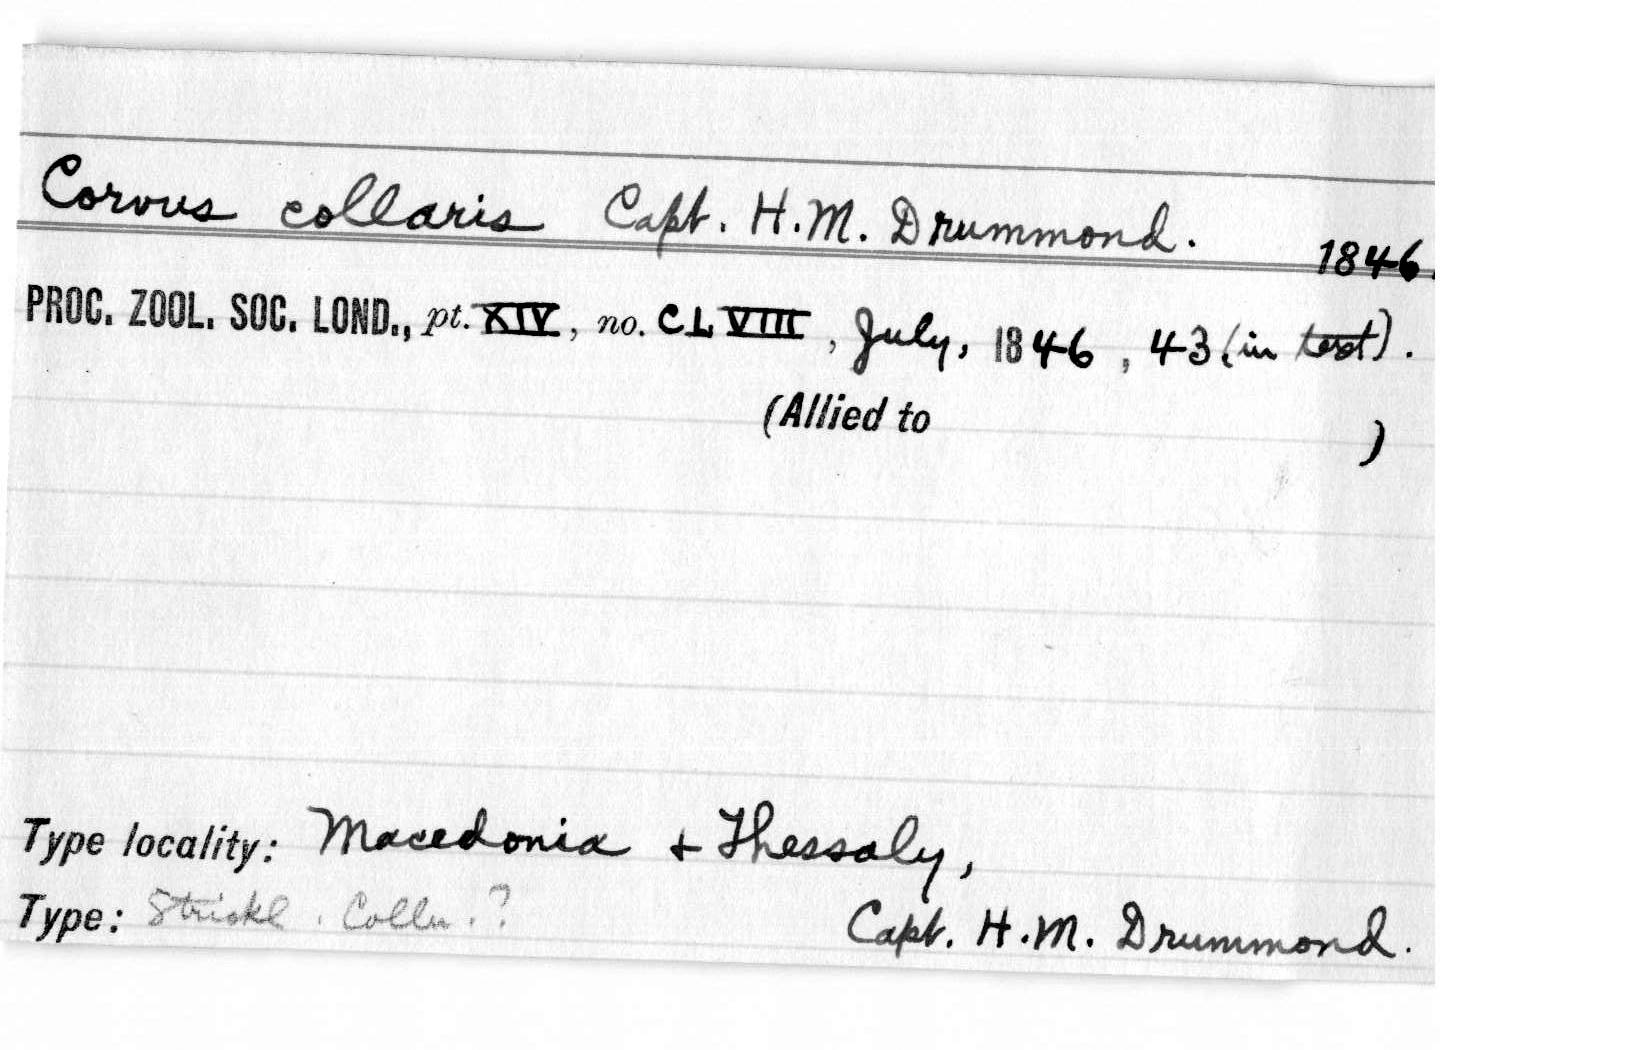 Corvus collaris Capt. H.M. Drummond. 1846.
PROC. ZOOL. SOC. LOND., pt. XIV, no. CLVIII, July, 1846, 43 (in text).
(Allied to )
Type locality: Macedonia + Thessaly,
Type: Strickl. Colln.? Capt. H.M. Drummond.